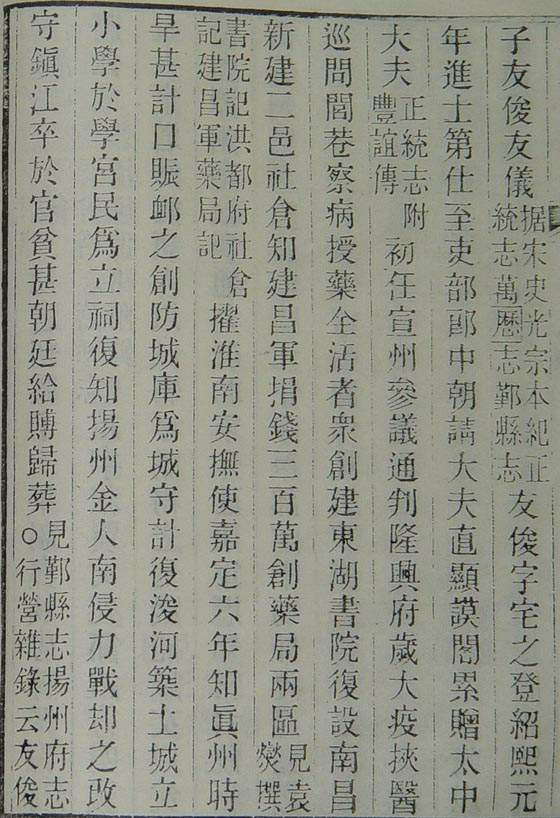 子友俊友儀据宋史光宗本紀正統志萬歷志鄞縣志友俊字宅之登紹熙元
年進士第仕至吏部郎中朝請大夫直顯謨閣累贈太中
大夫正統志附豐誼傳初任宣州參議通判隆興府歲大疫挾醫
巡問閭巷察病授藥全活者衆創建東湖書院復設南昌
新建二邑社倉知建昌軍捐錢三百萬創藥局兩區見袁燮撰
書院記洪都府社倉記建昌軍藥局記擢淮南安撫使嘉定六年知眞州時
旱甚計口賑卹之創防城庫爲城守計復浚河築土城立
小學於學宮民爲立祠復知揚州金人南侵力戰却之改
守鎭江卒於官貧甚朝廷給賻歸葬○見鄞縣志揚州府志行營雜錄云友俊